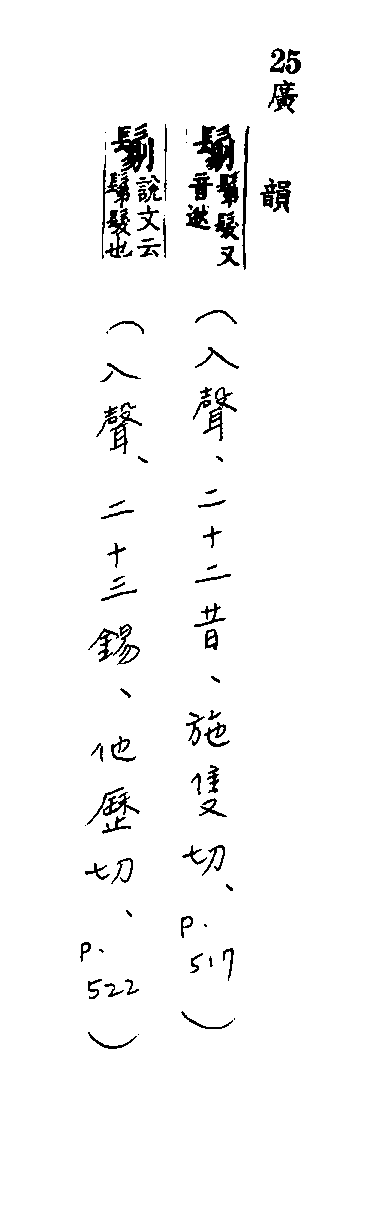 25 廣韻
䰂 鬀髮又
音逖
（入聲、二十二昔、施隻切、p. 517）
䰂 說文云
鬀髮也
（入聲、二十三錫、他歷切、p. 522）